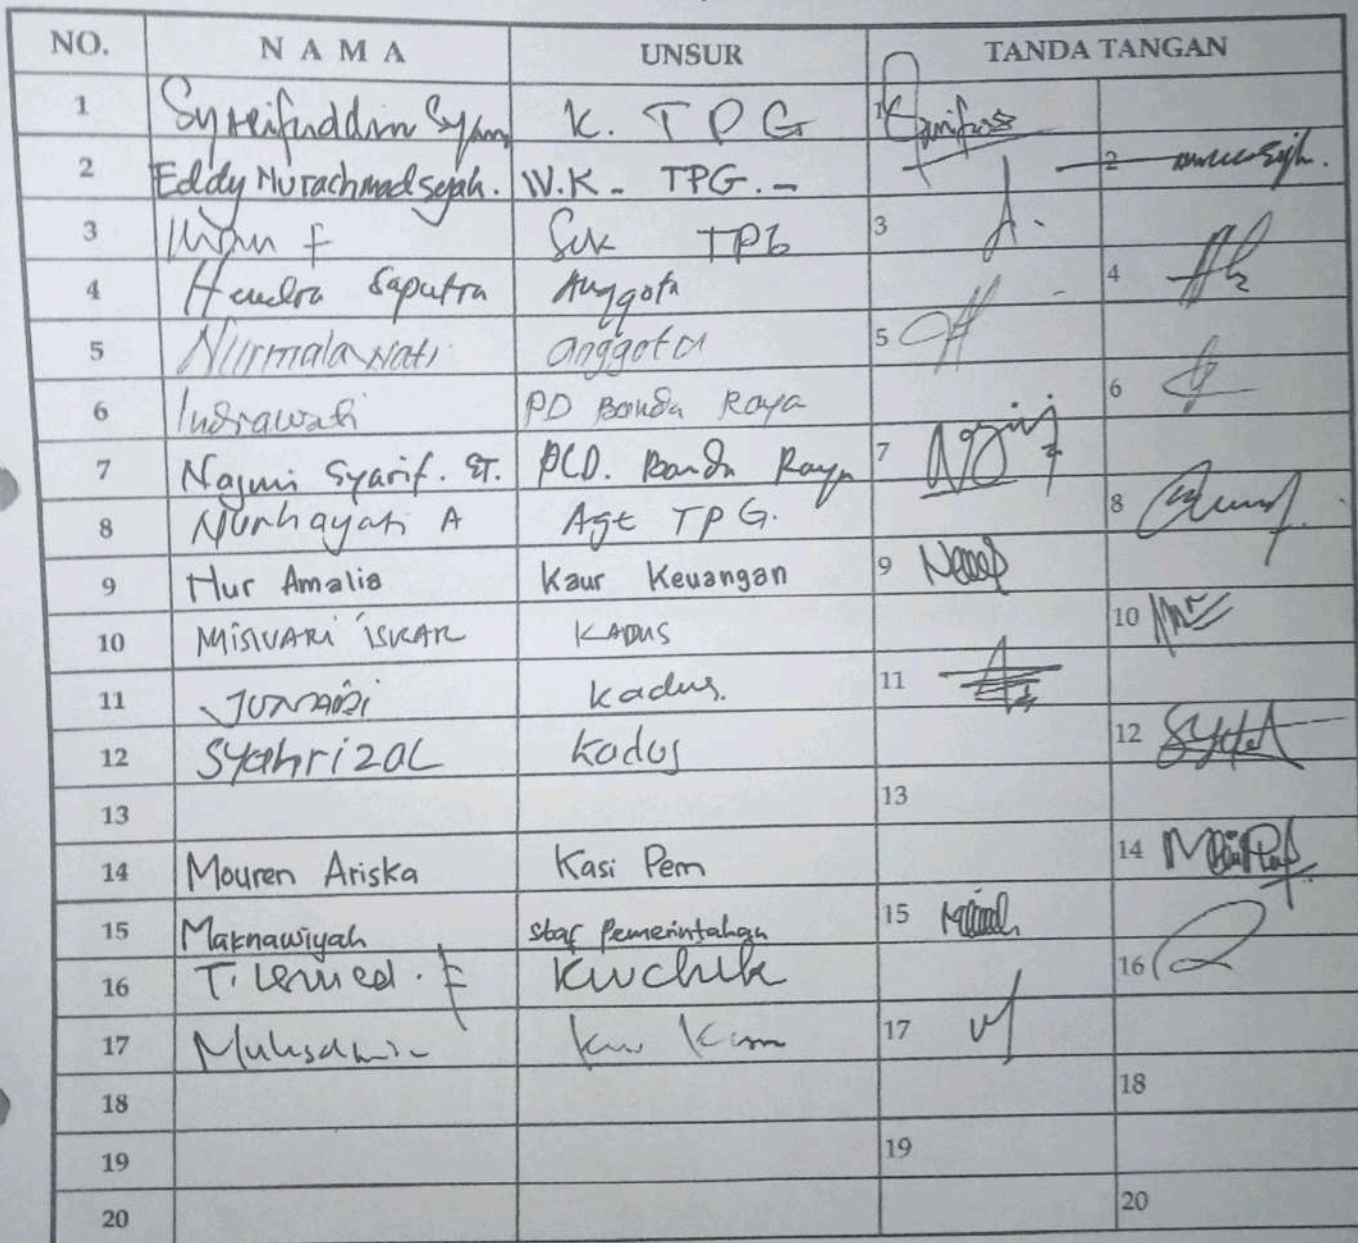 NO. N A M A UNSUR TANDA TANGAN
1 Syareifuddin K. TPG 1
2 Eddy Nurachmadsyah. W.K - TPG. - 2
3 F Sek TPG 3
4 Hendra Saputra Anggota 4
5 Nurmalawati anggota 5
6 Indrawati PD Banda Raya 6
7 Najmi Syarif. ST. PLD. Banda Raya 7
8 Nurhayati A Agt TPG. 8
9 Nur Amalia Kaur Keuangan 9
10 MISWARI ISKAR KADUS 10
11 JUNAIDI Kadus. 11
12 Syahrizal Kadus 12
13 13
14 Mouren Ariska Kasi Pem 14
15 Maknawiyah staf Pemerintahan 15
16 T. F Kuchik 16
17 17
18 18
19 19
20 20